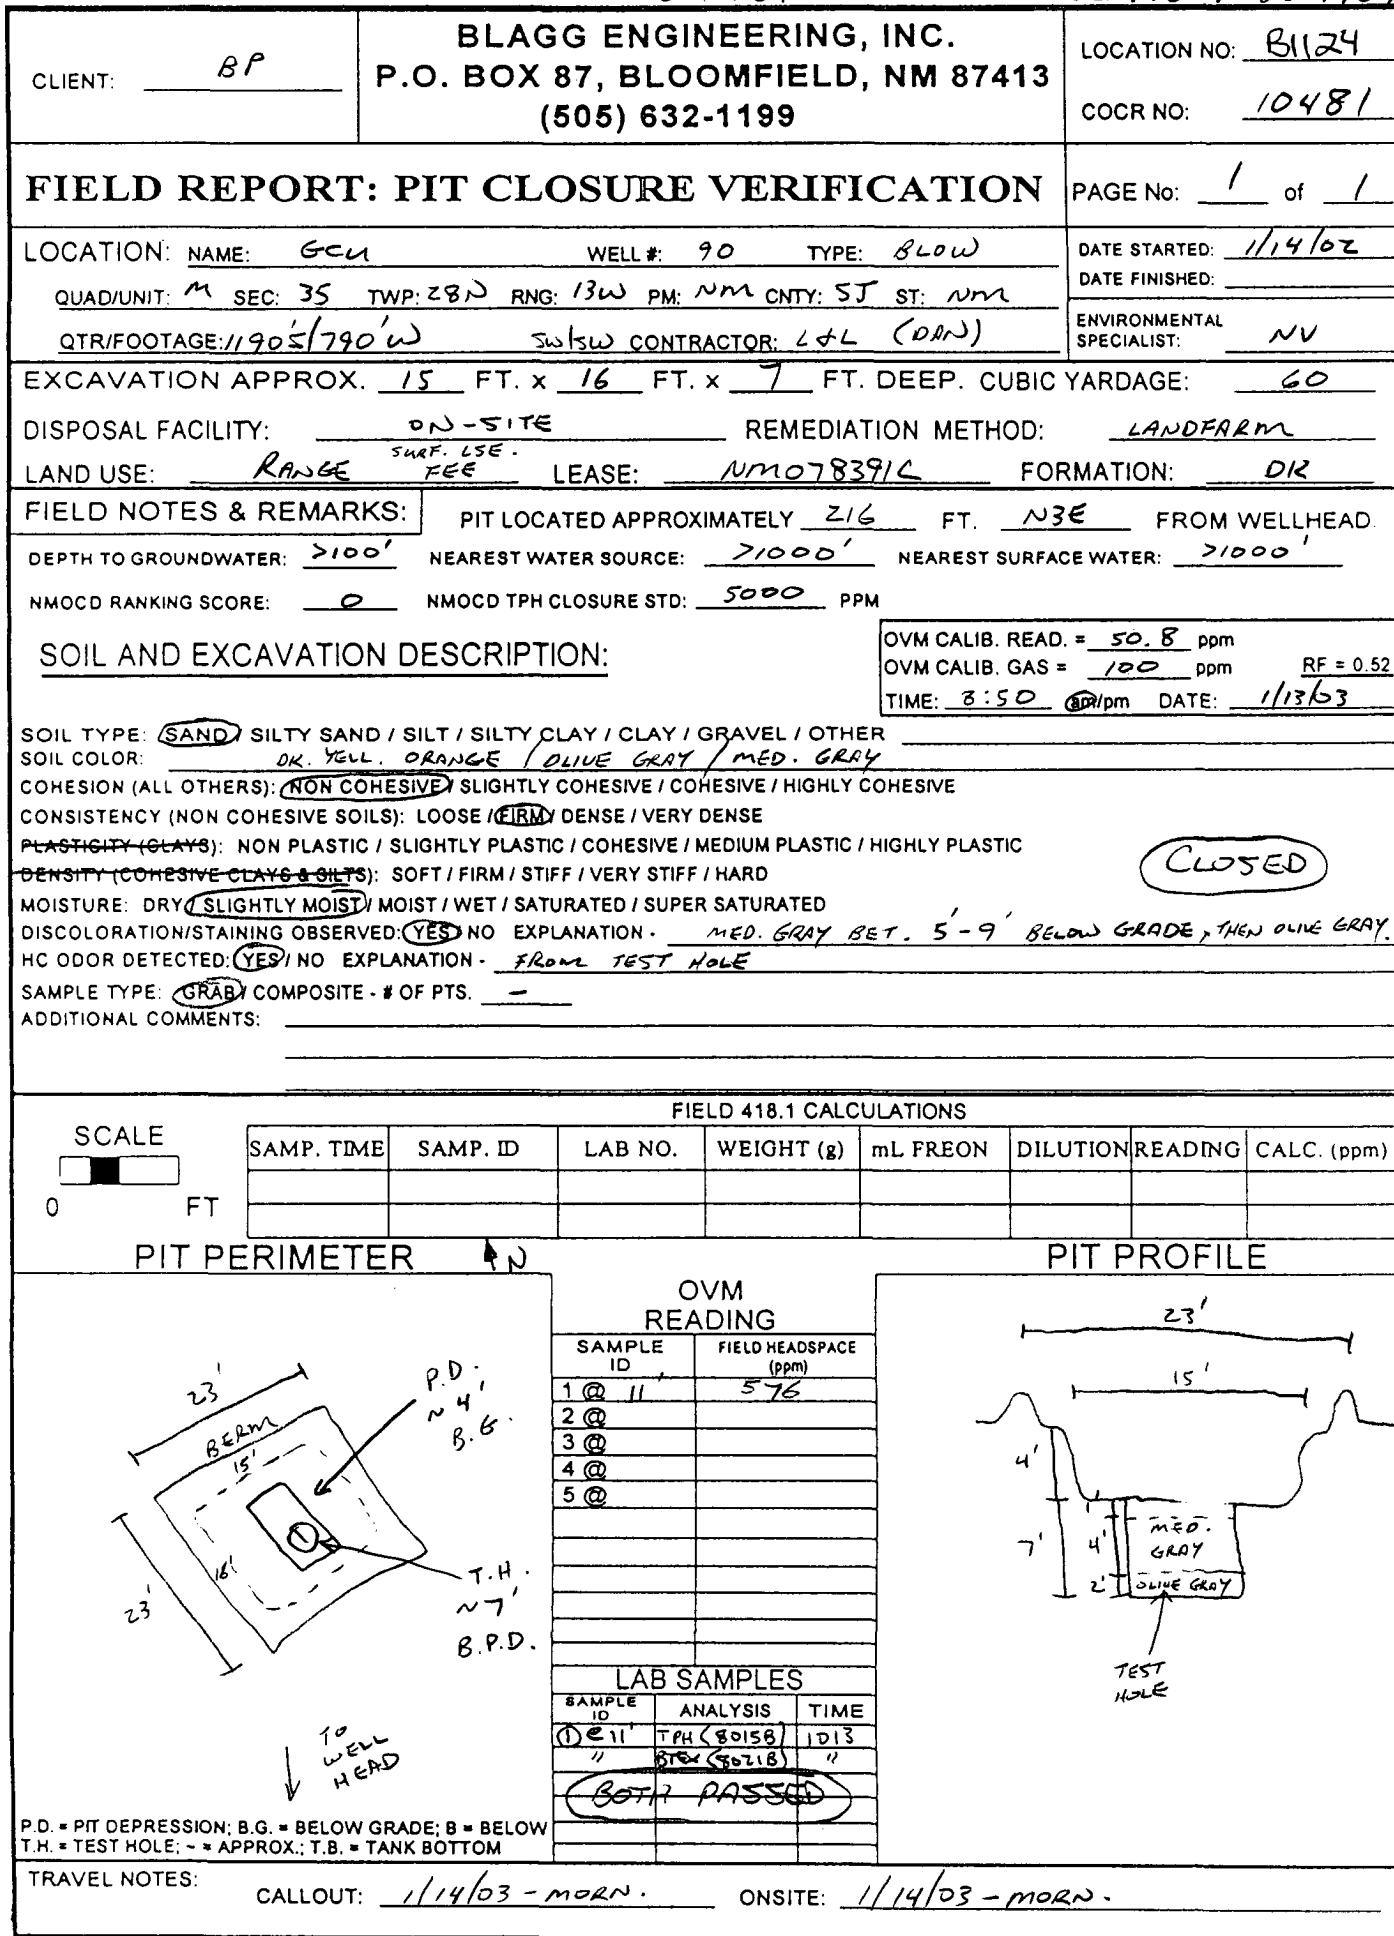 CLIENT: BP
BLAGG ENGINEERING, INC.
P.O. BOX 87, BLOOMFIELD, NM 87413
(505) 632-1199
LOCATION NO: B1124
COCR NO: 10481
FIELD REPORT: PIT CLOSURE VERIFICATION
PAGE No: 1 of 1
LOCATION: NAME: GCU WELL #: 90 TYPE: BLOW
DATE STARTED: 1/14/02
DATE FINISHED:
QUAD/UNIT: M SEC: 35 TWP: 28N RNG: 13W PM: NM CNTY: SJ ST: NM
QTR/FOOTAGE: 1190'S/790'W SW/SW CONTRACTOR: L&L (DAN)
ENVIRONMENTAL
SPECIALIST: NV
EXCAVATION APPROX. 15 FT. x 16 FT. x 7 FT. DEEP. CUBIC YARDAGE: 60
DISPOSAL FACILITY: ON-SITE REMEDIATION METHOD: LANDFARM
SURF. LSE.
LAND USE: RANGE FEE LEASE: NM078391C FORMATION: DK
FIELD NOTES & REMARKS: PIT LOCATED APPROXIMATELY 216 FT. N3E FROM WELLHEAD.
DEPTH TO GROUNDWATER: >100' NEAREST WATER SOURCE: >1000' NEAREST SURFACE WATER: >1000'
NMOCD RANKING SCORE: 0 NMOCD TPH CLOSURE STD: 5000 PPM
SOIL AND EXCAVATION DESCRIPTION:
OVM CALIB. READ. = 50.8 ppm
OVM CALIB. GAS = 100 ppm RF = 0.52
TIME: 8:50 am/pm DATE: 1/13/03
SOIL TYPE: SAND / SILTY SAND / SILT / SILTY CLAY / CLAY / GRAVEL / OTHER
SOIL COLOR: DK. YELL. ORANGE / OLIVE GRAY / MED. GRAY
COHESION (ALL OTHERS): NON COHESIVE / SLIGHTLY COHESIVE / COHESIVE / HIGHLY COHESIVE
CONSISTENCY (NON COHESIVE SOILS): LOOSE / FIRM / DENSE / VERY DENSE
PLASTICITY (CLAYS): NON PLASTIC / SLIGHTLY PLASTIC / COHESIVE / MEDIUM PLASTIC / HIGHLY PLASTIC
DENSITY (COHESIVE CLAYS & SILTS): SOFT / FIRM / STIFF / VERY STIFF / HARD
CLOSED
MOISTURE: DRY / SLIGHTLY MOIST / MOIST / WET / SATURATED / SUPER SATURATED
DISCOLORATION/STAINING OBSERVED: YES / NO EXPLANATION - MED. GRAY BET. 5'-9' BELOW GRADE, THEN OLIVE GRAY.
HC ODOR DETECTED: YES / NO EXPLANATION - FROM TEST HOLE
SAMPLE TYPE: GRAB / COMPOSITE - # OF PTS. -
ADDITIONAL COMMENTS:
FIELD 418.1 CALCULATIONS
SCALE
0 FT
SAMP. TIME SAMP. ID LAB NO. WEIGHT (g) mL FREON DILUTION READING CALC. (ppm)
PIT PERIMETER N
23'
BERM
15'
16'
23'
P.D.
~ 4'
B.G.
1
T.H.
~ 7'
B.P.D.
TO
WELL
HEAD
P.D. = PIT DEPRESSION; B.G. = BELOW GRADE; B = BELOW
T.H. = TEST HOLE; ~ = APPROX.; T.B. = TANK BOTTOM
OVM
READING
SAMPLE ID FIELD HEADSPACE (ppm)
1 @ 11' 576
2 @
3 @
4 @
5 @
LAB SAMPLES
SAMPLE ID ANALYSIS TIME
① @ 11' TPH (8015B) 1013
" BTEX (8021B) "
BOTH PASSED
PIT PROFILE
23'
15'
4'
7'
1'
4'
2'
MED.
GRAY
OLIVE GRAY
TEST
HOLE
TRAVEL NOTES:
CALLOUT: 1/14/03 - MORN. ONSITE: 1/14/03 - MORN.